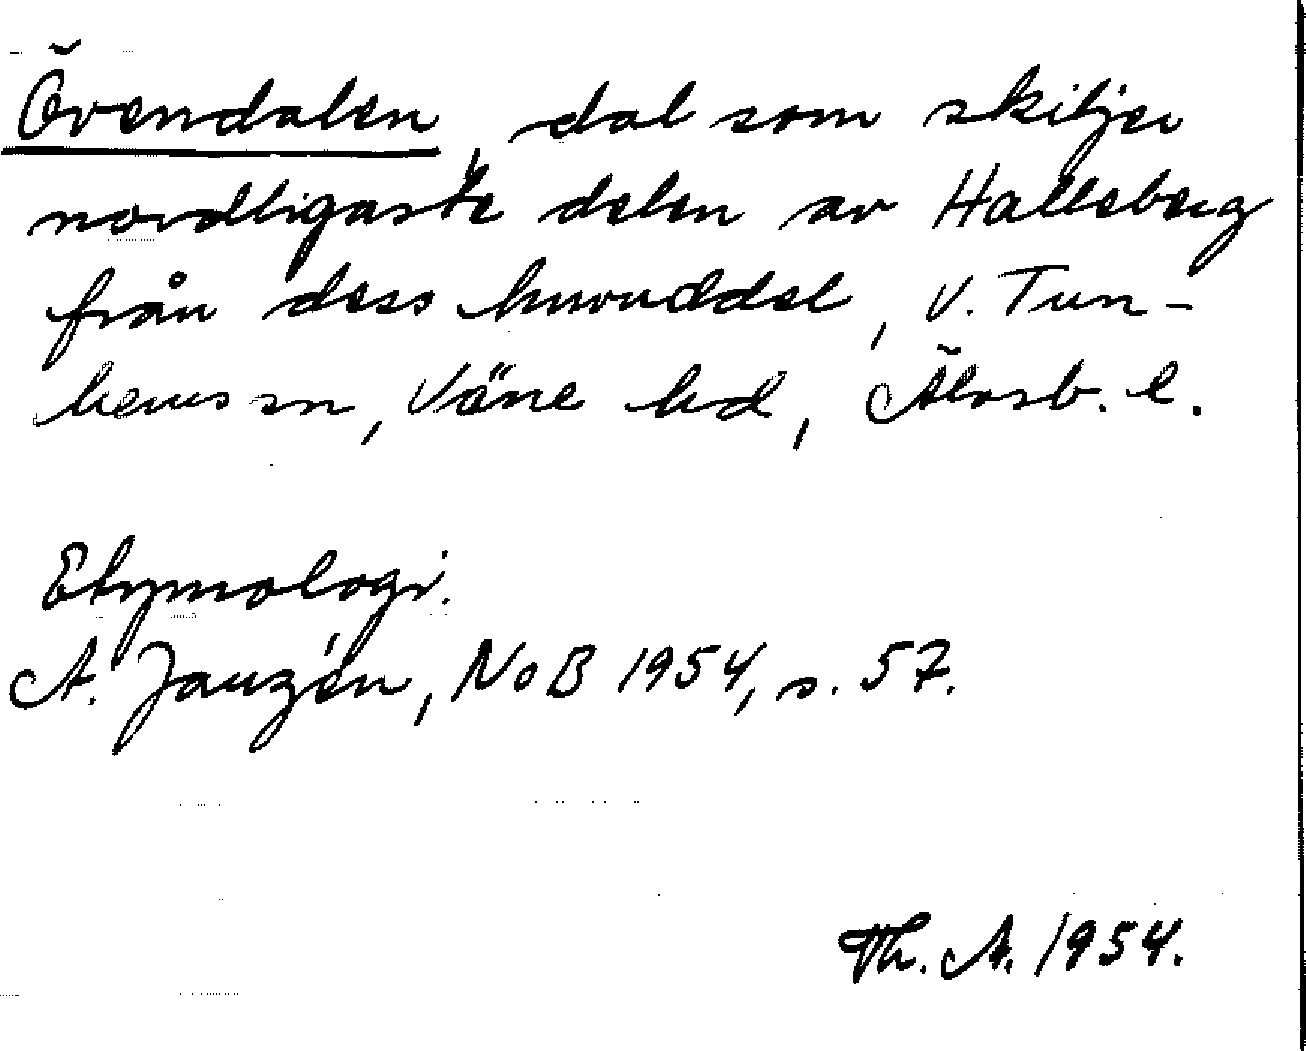 Övendalen, dal som skiljer
nordligaste delen av Halleberg
från dess huvuddel, V. Tun-
hems sn, Väne hd, Älvsb. l.
Etymologi.
A. Janzén, NoB 1954, s. 57.
Th. A. 1954.